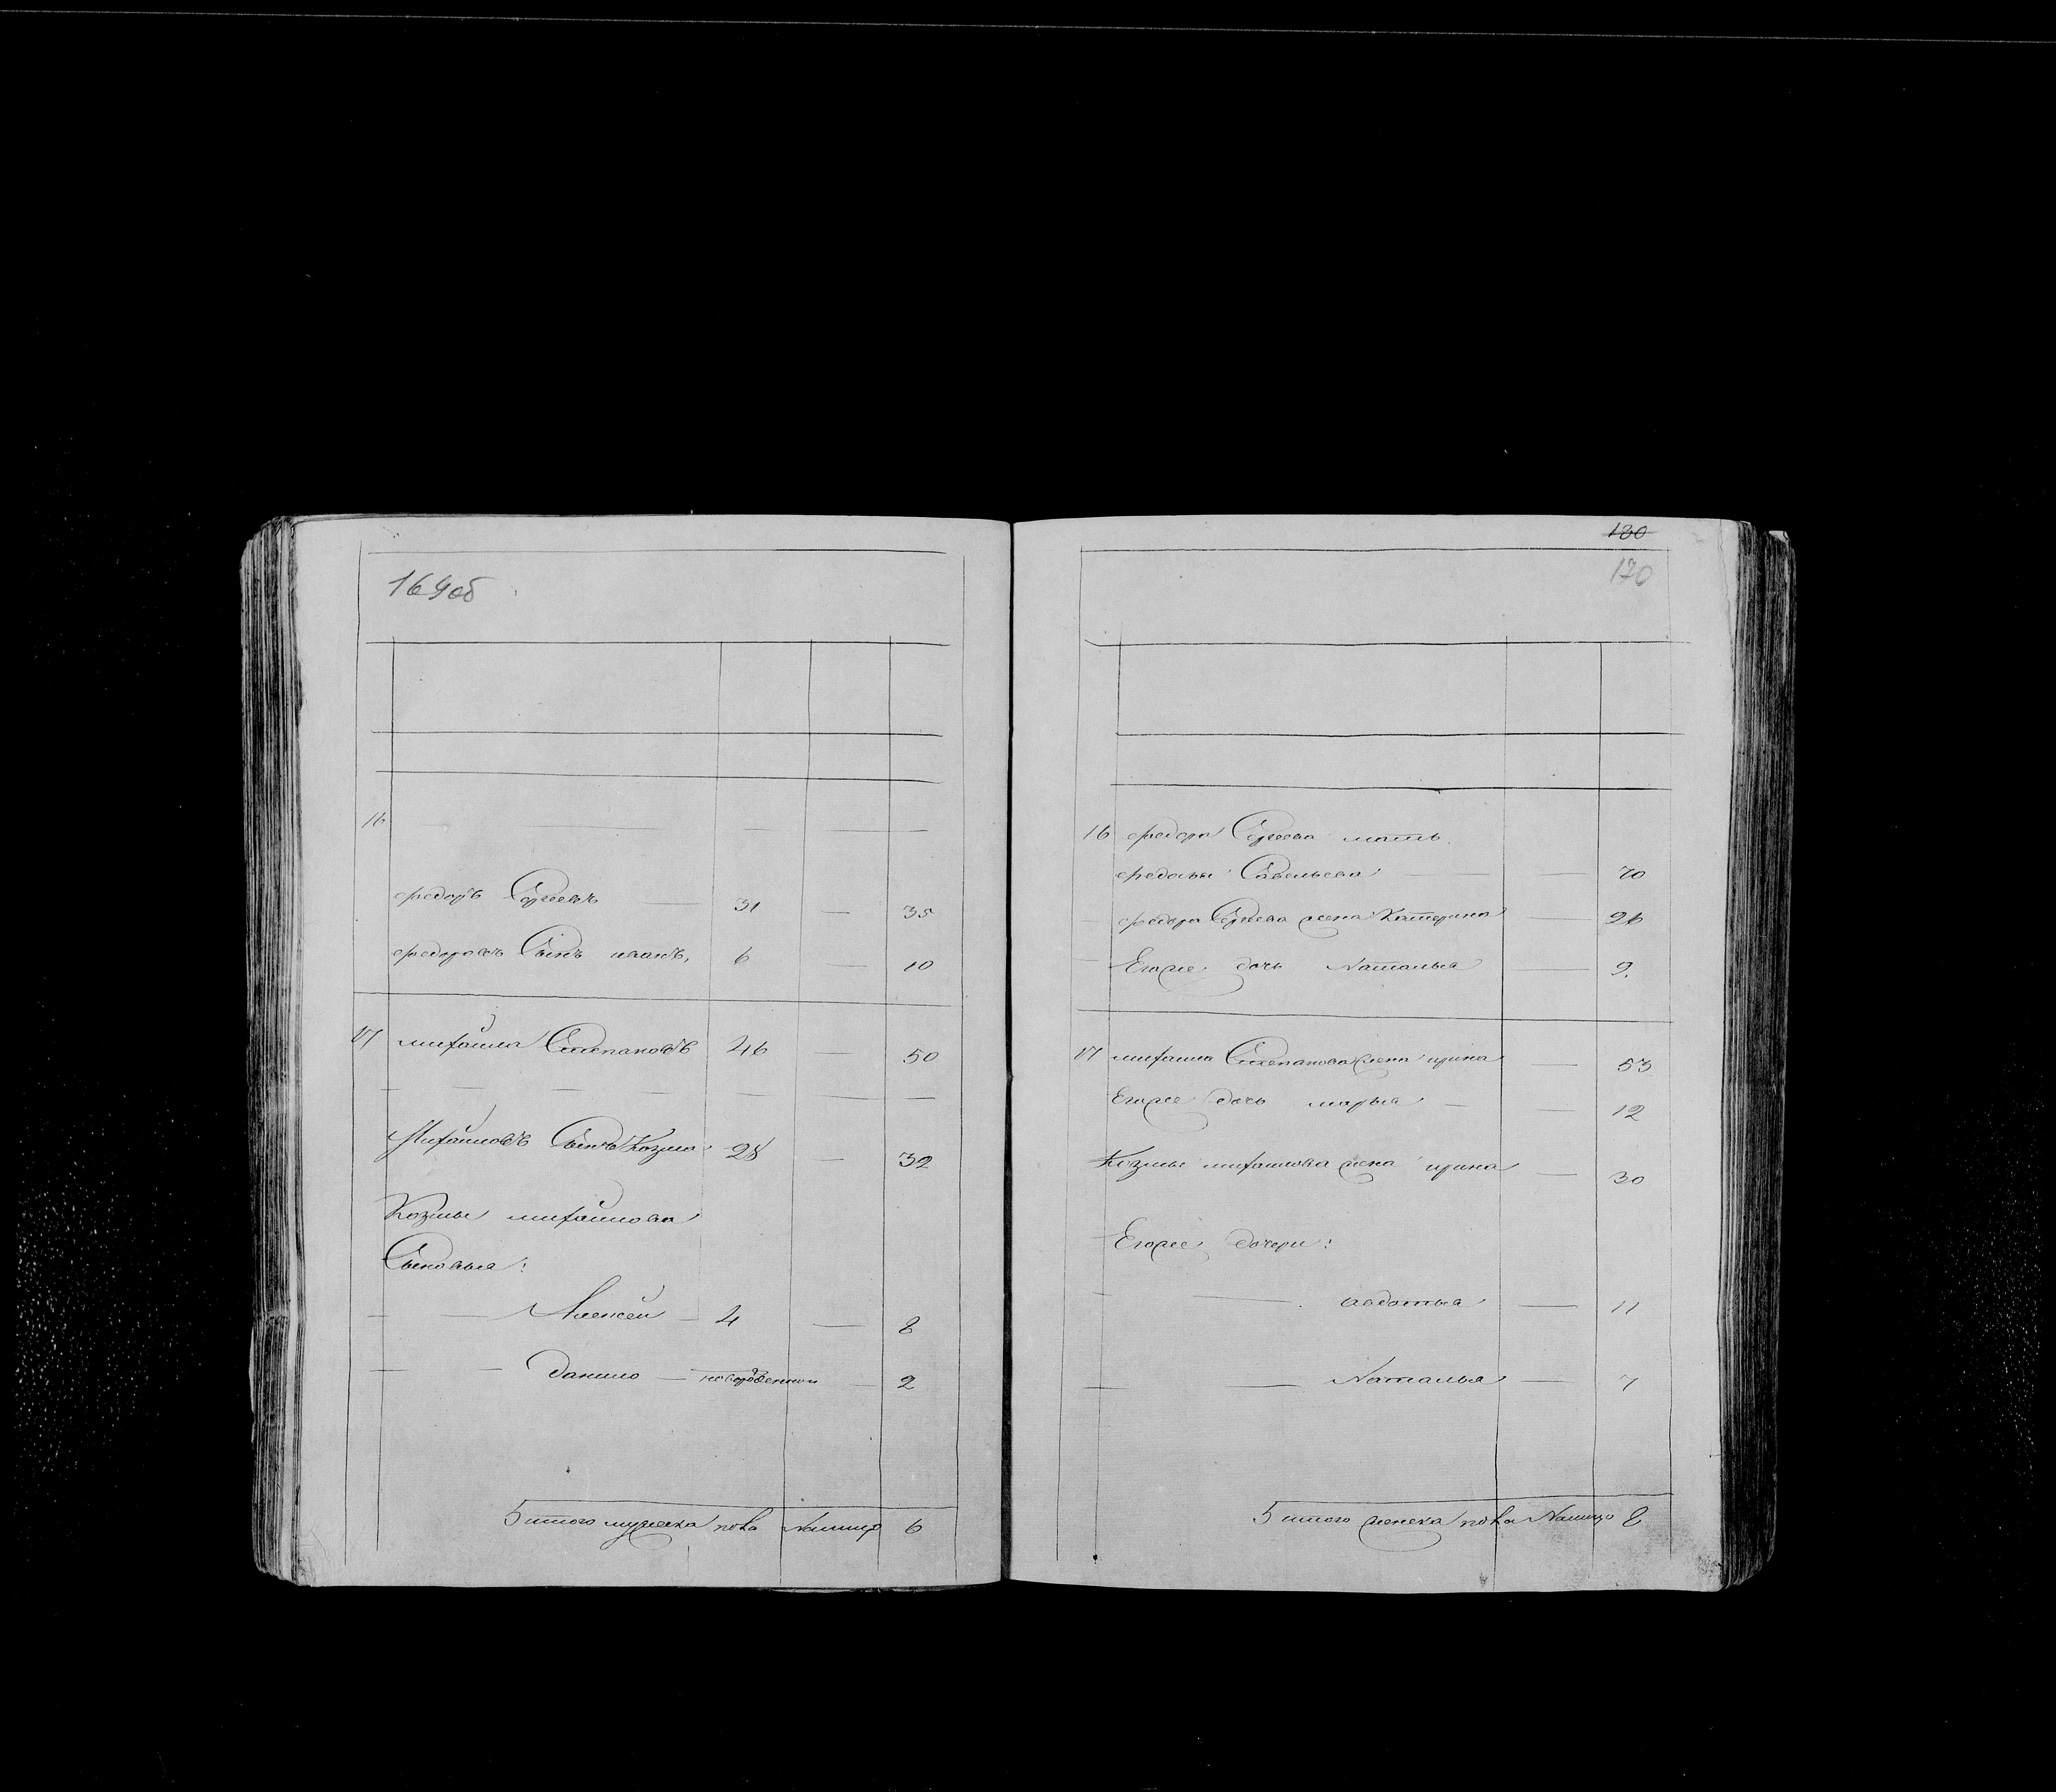 169об
16
федоръ Сергеевъ 31 — 35
федоровъ Сынъ иванъ, 6 — 10
17 михаила Степановъ 46 — 50
Михаиловъ Сынъ Козма 28 — 32
Козмы михаилова
Сыновья:
Алексей 4 — 8
данило — новорожденной — 2
итого мужеска пола Налицо 6
180
170
16 федора Сергеева мать
федосья Савельева — 70
федора Сергеева жена Катерина — 26
Егоже дочь Наталья — 9.
17 михаила Степанова жена ирина — 53
Егоже дочь марья — 12
Козмы михаилова жена ирина — 30
Егоже дочери:
авдотья — 11
Наталья — 7
итого женска пола Налицо 8